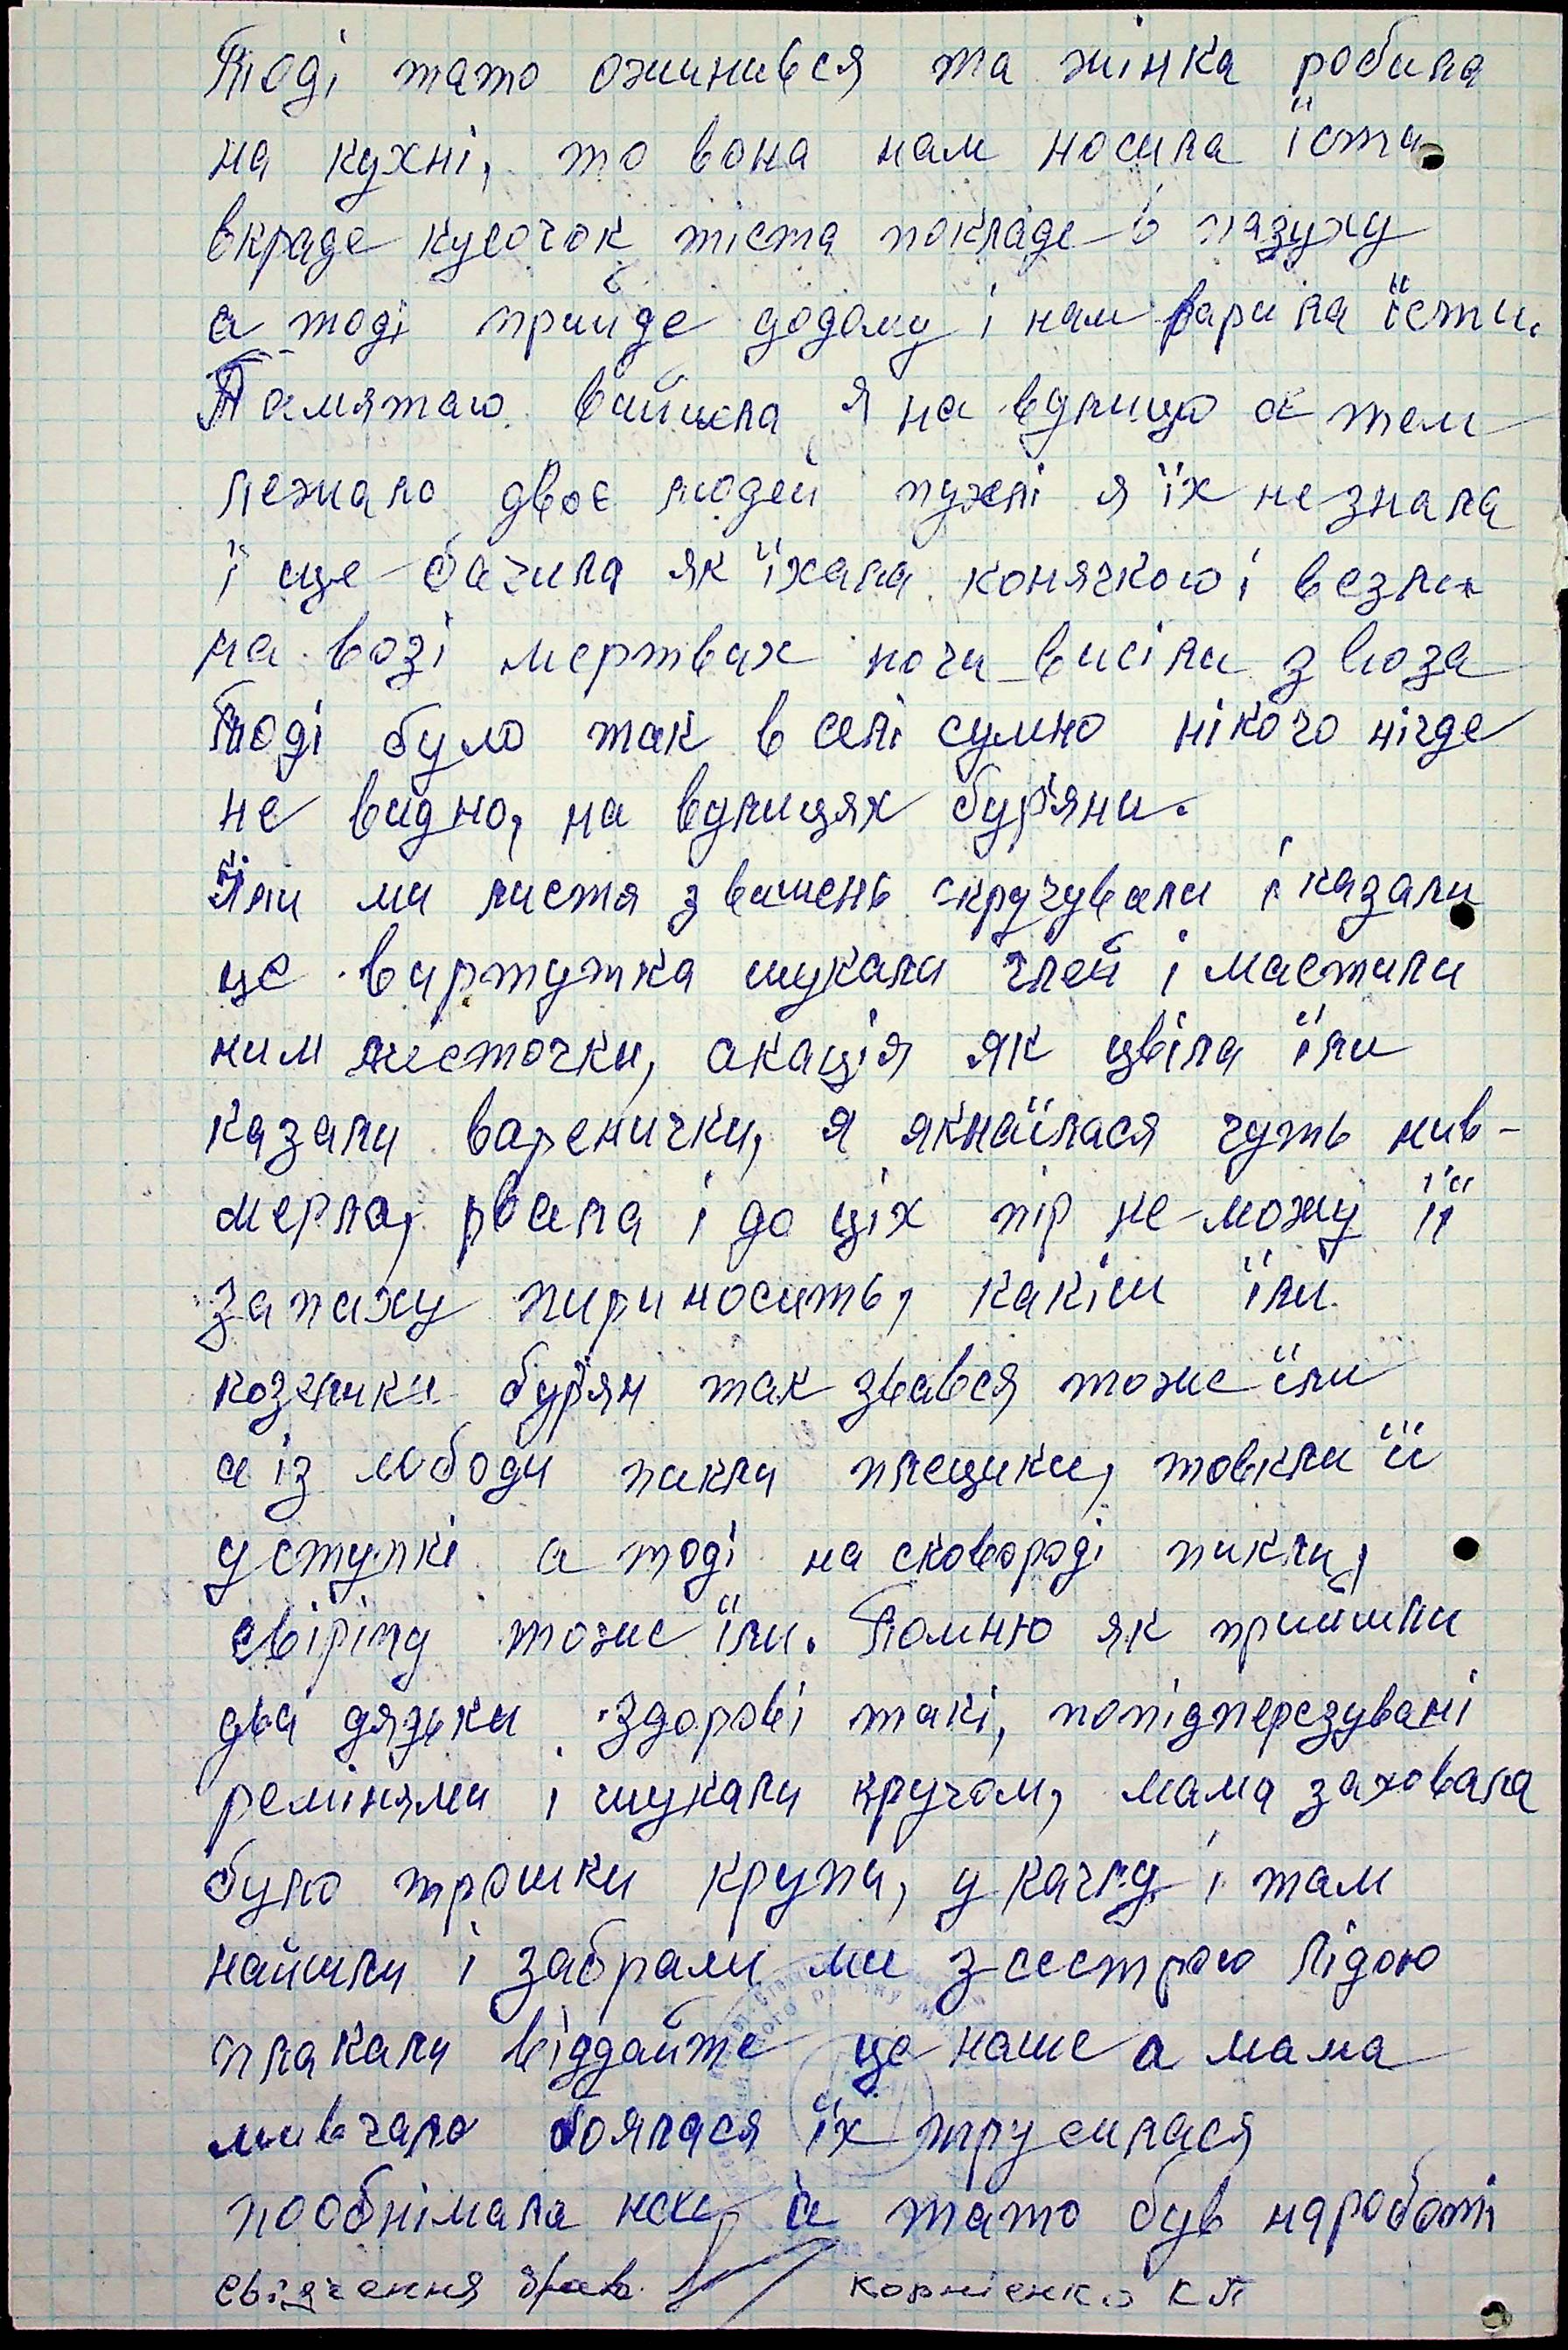 Тоді тато оженився та жінка робила
на кухні, то вона нам носила їсти
вкраде кусочок тіста покладе в пазуху
а тоді прийде додому і нам варила їсти.
Памятаю вийшла я на вулицю а там
лежало двоє людей пухлі я їх не знала
і ще бачила як їхала конячкою і везли
на возі мертвих ноги висіли з воза
Тоді було так в селі сумно нікого нігде
не видно, на вулицях бур'яни.
Їли ми листя з вишень скручували і казали
це вертутка шукали глей і мастили
ним листочки, акація як цвіла їли
казали варенички, я як наїлася чуть нив-
мерла, рвала і до ціх пір не можу її
запаху пириносить, какіш їли
козлики бур'ян так звався тоже їли
а із лободи пикли плецики, товкли її
у ступкі а тоді на сковороді пикли,
свіріпу тоже їли. Помню як прийшли
два дядьки здорові такі, попідперезувані
ремінями і шукали кругом, мама заховала
було трошки крупи, у качлу і там
найшли і забрали ми з сестрою Лідою
плакали віддайте це наше а мама
мивчала боялася їх трусилася
пообнімала нас, а тато був на роботі
свідчення брав Корнієнко К П